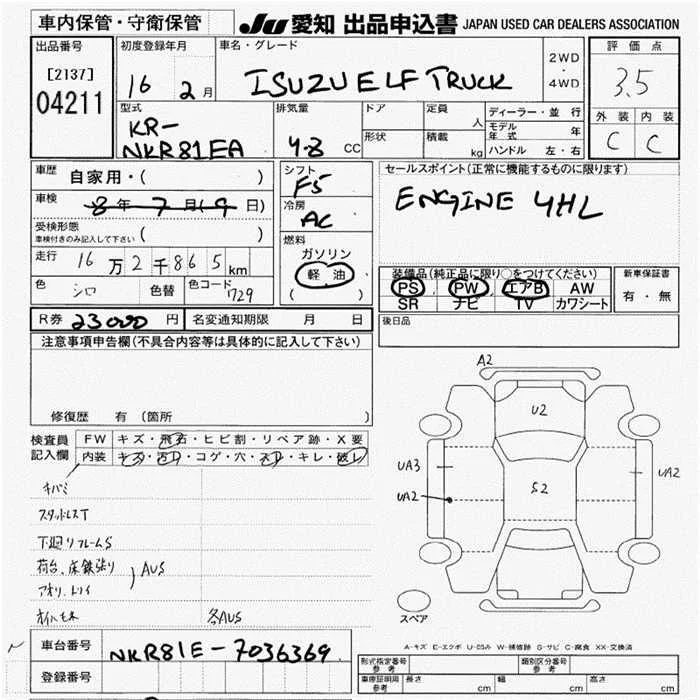 車内保管・守衛保管
JU 愛知 出品申込書 JAPAN USED CAR DEALERS ASSOCIATION
出品番号
[2137]
04211
初度登録年月
16 2月
車名・グレード
ISUZU ELF TRUCK
2WD
・
4WD
評価点
3.5
外装 内装
C C
型式
KR-
NKR81EA
排気量
4.8 CC
ドア
形状
定員
人
積載
kg
ディーラー・並行
モデル年式 年
ハンドル 左・右
車歴
自家用・( )
車検
8年 7月(9日)
受検形態
車検付きのみ記入して下さい ( )
走行
16万2千865km
色 シロ 色替 色コード 729
シフト
F5
冷房
AC
燃料
ガソリン
軽油
( )
セールスポイント(正常に機能するものに限ります)
ENGINE 4HL
装備品(純正品に限り○をつけてください)
PS PW エアB AW
SR ナビ TV カワシート
新車保証書
有・無
R券 23000円 名変通知期限 月 日
後日品
注意事項申告欄(不具合内容等は具体的に記入して下さい)
修復歴 有(箇所 )
検査員
記入欄
FW キズ・飛石・ヒビ割・リペア跡・X要
内装 キズ・汚レ・コゲ・穴・スレ・キレ・破レ
キバミ
スタッドレスT
下廻リフレームS
荷台、床鉄張り
アオリ、トリイ
AUS
各AUS
A2
U2
UA3
UA2
S2
UA2
スペア
A-キズ E-エクボ U-凹み W-補修跡 S-サビ C-腐食 XX-交換済
車台番号
NKR81E-7036369
登録番号
形式指定番号
参考
類別区分番号
参考
車庫証明用
参考
長さ cm 幅 cm 高さ cm